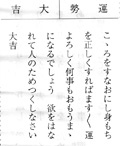 運勢大吉
こゝろをすなおにし身もち
を正しくすればます〱運
よろしく何事もおもうまゝ
になるでしょう　欲をはな
れて人のためつくしなさい
大吉